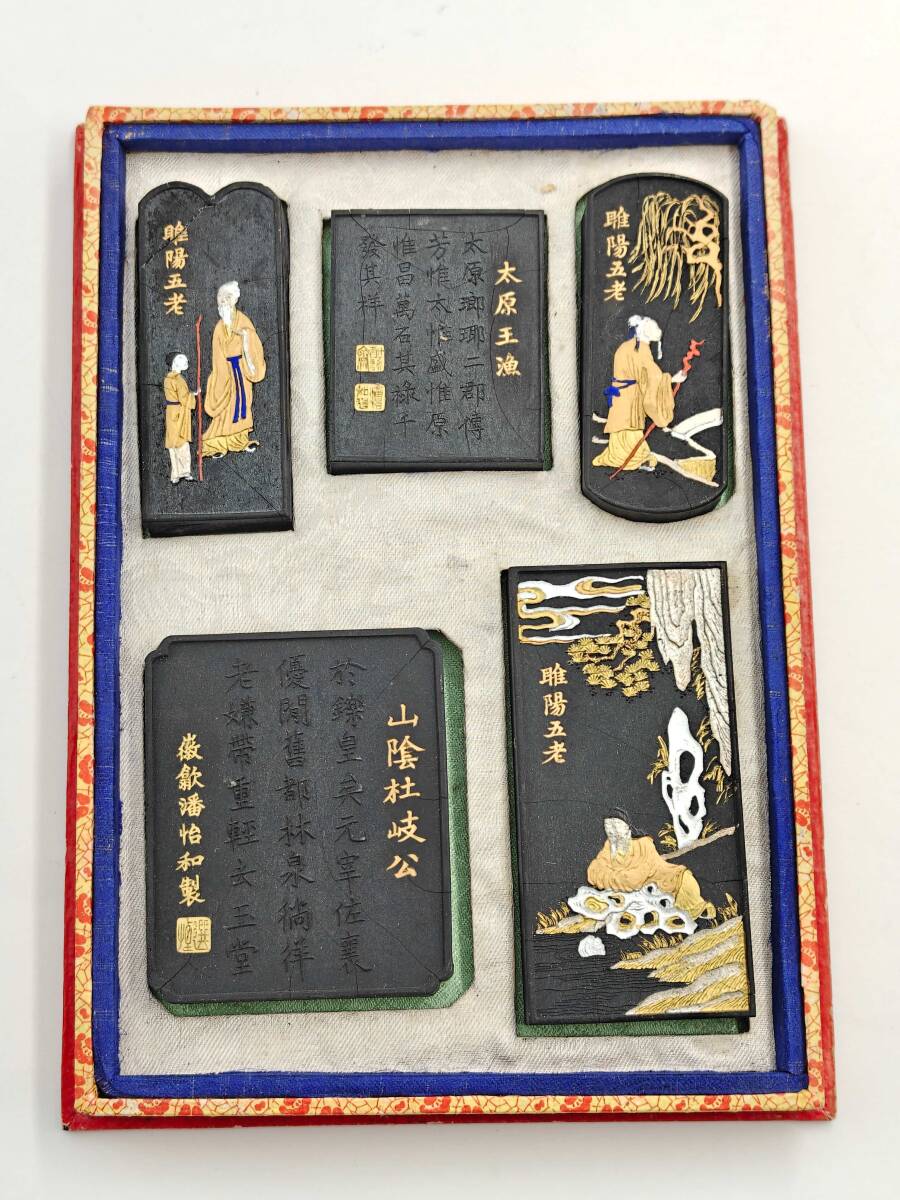 睢陽五老
太原王漁
太原瑯瑘二郡傳
芳惟太惟盛惟原
惟昌萬石其祿千
發其祥
睢陽五老
山陰杜岐公
於鑠皇矣元宰佐襄
優閒舊都林泉徜徉
老嫌帶重輕去玉堂
徽歙潘怡和製
睢陽五老